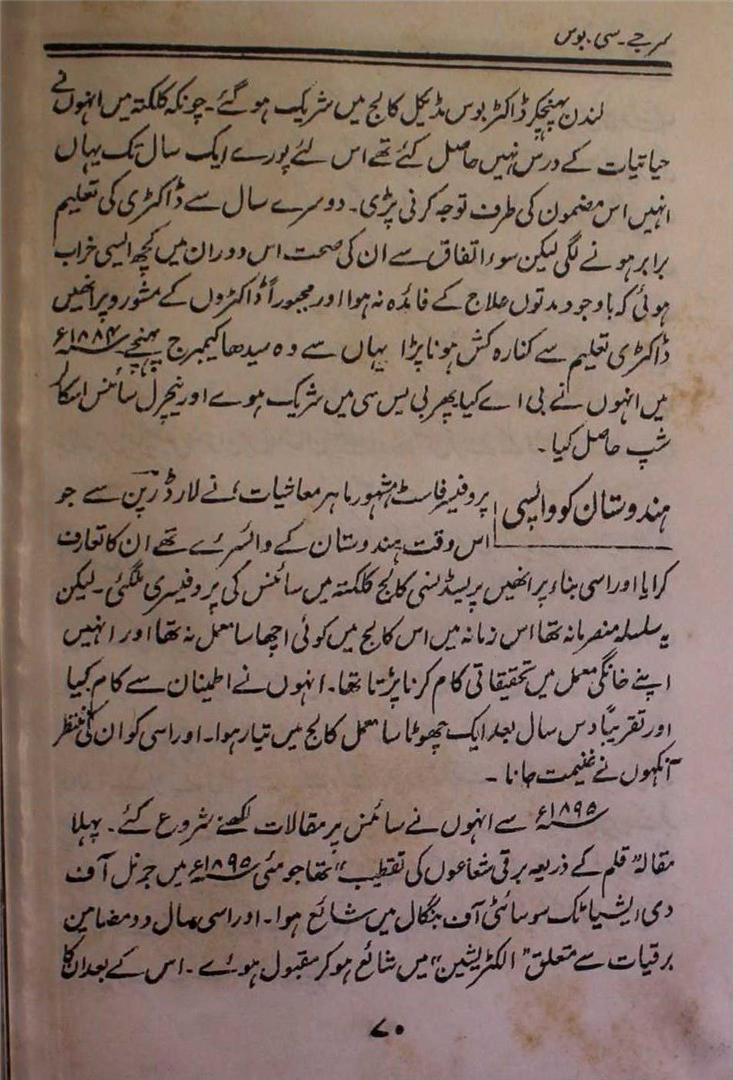 سر جے۔ سی۔ بوس
لندن پہنچکر ڈاکٹر بوس مڈیکل کالج میں شریک ہو گئے۔ چونکہ کلکتہ میں انہوں نے
حیاتیات کے درس نہیں حاصل کئے تھے اس لئے پورے ایک سال تک یہاں
انہیں اس مضمون کی طرف توجہ کرنی پڑی۔ دوسرے سال سے ڈاکٹری کی تعلیم
برابر ہونے لگی لیکن سوء اتفاق سے ان کی صحت اس دوران میں کچھ ایسی خراب
ہوئی کہ باوجود مدتوں علاج کے فائدہ نہ ہوا اور مجبوراً ڈاکٹروں کے مشورہ پر انھیں
ڈاکٹری تعلیم سے کنارہ کش ہونا پڑا یہاں سے وہ سیدھا کیمبرج پہنچے ۱۸۸۴ء
میں انہوں نے بی اے کیا پھر بی یس سی میں شریک ہوے اور نیچرل سائنس اسکالر
شپ حاصل کیا۔
ہندوستان کو واپسی پروفیسر فاسٹ (مشہور ماہر معاشیات) نے لارڈ رپن سے جو
اس وقت ہندوستان کے وائسرے تھے ان کا تعارف
کرایا اور اسی بناء پر انھیں پریسڈنسی کالج کلکتہ میں سائنس کی پروفیسری ملگئی۔ لیکن
یہ سلسلہ منصرمانہ تھا اس زمانہ میں اس کالج میں کوئی اچھا سا معمل نہ تھا اور انہیں
اپنے خانگی معمل میں تحقیقاتی کام کرنا پڑتا تھا۔ انہوں نے اطمینان سے کام کیا
اور تقریباً دس سال بعد ایک چھوٹا سا معمل کالج میں تیار ہوا۔ اور اسی کو ان کی منتظر
آنکھوں نے غنیمت جانا۔
۱۸۹۵ء سے انہوں نے سائنس پر مقالات لکھنے شروع کئے۔ پہلا
مقالہ "قلم کے ذریعہ برقی شعاعوں کی تقطیب" تھا جو مئی ۱۸۹۵ء میں جرنل آف
دی ایشیاٹک سوسائٹی آف بنگال میں شائع ہوا۔ اور اسی سال دو مضامین
برقیات سے متعلق "الکٹریشین" میں شائع ہو کر مقبول ہوئے۔ اس کے بعد ان کا
۷۰